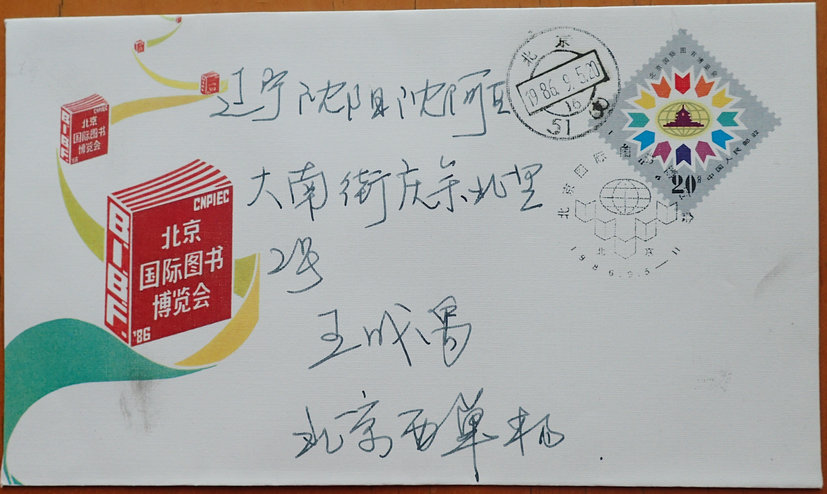 CNPIEC
BIBF
北京
国际图书
博览会
'86
CNPIEC
BIBF
北京
国际图书
博览会
'86
辽宁沈阳沈河区
大南街庆余北里
2号
王成
北京西单杨
北京
1986.9.5.20
16
51
北京国际图书博览会
中国人民邮政
20
北京国际图书
北京
1986.9.5—11